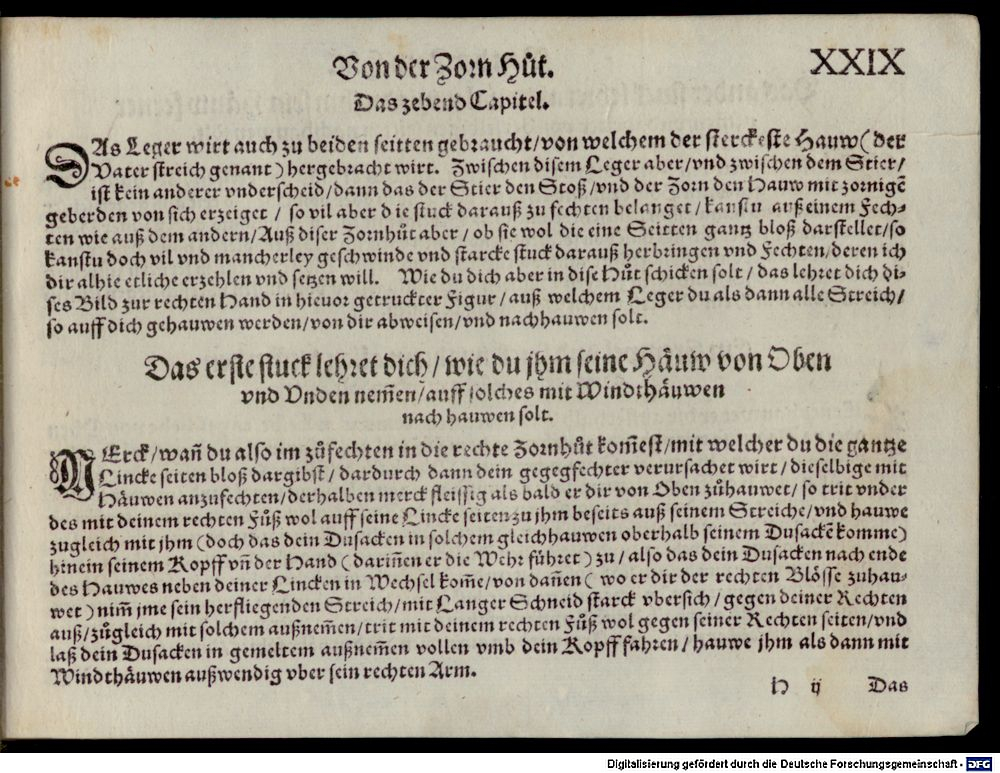 XXIX
Von der Zorn Hůt.
Das zehend Capitel.
DAs Leger wirt auch zu beiden seitten gebraucht/von welchem der sterckeste Hauw (der
Vater streich genant) hergebracht wirt. Zwischen disem Leger aber/vnd zwischen dem Stier/
ist kein anderer vnderscheid/dann das der Stier den Stoß/vnd der Zorn den Hauw mit zornigẽ
geberden von sich erzeiget / so vil aber die stuck darauß zu fechten belanget/kanstu auß einem Fech-
ten wie auß dem andern/Auß diser Zornhůt aber / ob sie wol die eine Seitten gantz bloß darstellet/so
kanstu doch vil vnd mancherley geschwinde vnd starcke stuck darauß herbringen vnd Fechten/deren ich
dir alhie etliche erzehlen vnd setzen will. Wie du dich aber in dise Hůt schicken solt / das lehret dich di-
ses Bild zur rechten Hand in hievor getruckter Figur / auß welchem Leger du als dann alle Streich/
so auff dich gehauwen werden/von dir abweisen/vnd nachhauwen solt.
Das erste stuck lehret dich / wie du jhm seine Häuw von Oben
vnd Vnden nem̃en/auff solches mit Windthäuwen
nach hauwen solt.
MErck/wañ du also im zůfechten in die rechte Zornhůt kom̃est/mit welcher du die gantze
Lincke seiten bloß dargibst / dardurch dann dein gegegfechter verursachet wirt / dieselbige mit
Häuwen anzufechten/derhalben merck fleissig als bald er dir von Oben zůhauwet/ so trit vnder
des mit deinem rechten Fůß wol auff seine Lincke seiten zu jhm beseits auß seinem Streiche/vnd hauwe
zugleich mit jhm (doch das dein Dusacken in solchem gleichhauwen oberhalb seinem Dusackẽ komme)
hinein seinem Kopff vñ der Hand (dariñen er die Wehr führet) zu / also das dein Dusacken nach ende
des Hauwes neben deiner Lincken in Wechsel kom̃e/von dañen ( wo er dir der rechten Blösse zuhau-
wet) nim̃ jme sein herfliegenden Streich/mit Langer Schneid starck vbersich / gegen deiner Rechten
auß/zůgleich mit solchem außnem̃en/trit mit deinem rechten Fůß wol gegen seiner Rechten seiten/vnd
laß dein Dusacken in gemeltem außnem̃en vollen vmb dein Kopff fahren / hauwe jhm als dann mit
Windthäuwen außwendig vber sein rechten Arm.
H ij Das
Digitalisierung gefördert durch die Deutsche Forschungsgemeinschaft - DFG